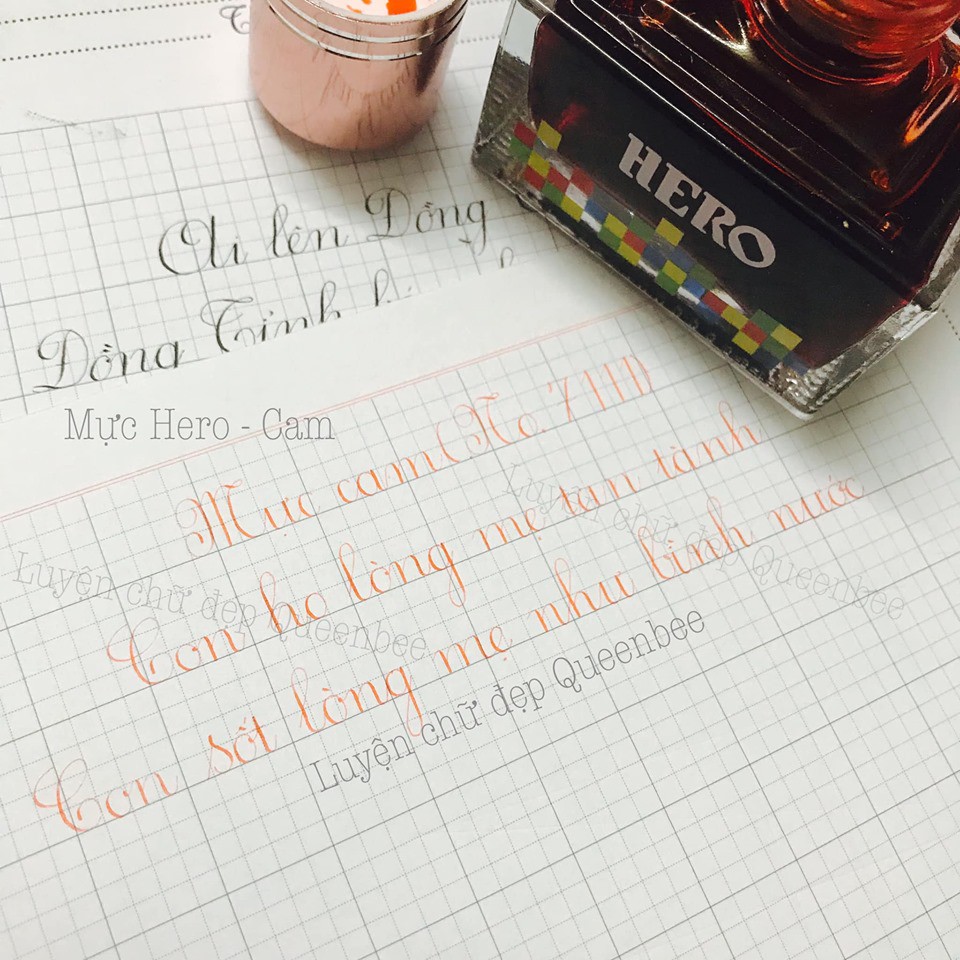 HERO
Ai lên Đồng
Đồng Tỉnh
Mực Hero - Cam
Mực cam (No. 711)
Con ho lòng mẹ tan tành
Con sốt lòng mẹ như bình nước
Luyện chữ đẹp Queenbee
Luyện chữ đẹp Queenbee
Luyện chữ đẹp Queenbee